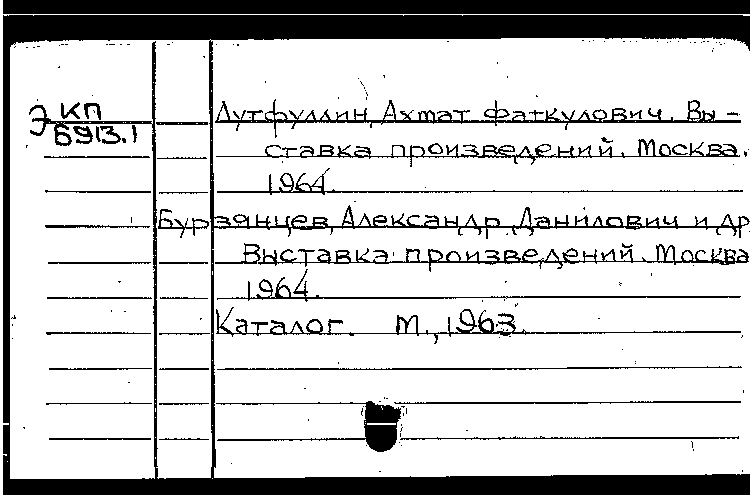 Э КП
Б913.1
Лутфуллин, Ахмат Фаткулович. Вы-
ставка произведений. Москва.
1964.
Бурзянцев, Александр Данилович и др
Выставка произведений. Москва
1964.
Каталог. М., 1963.